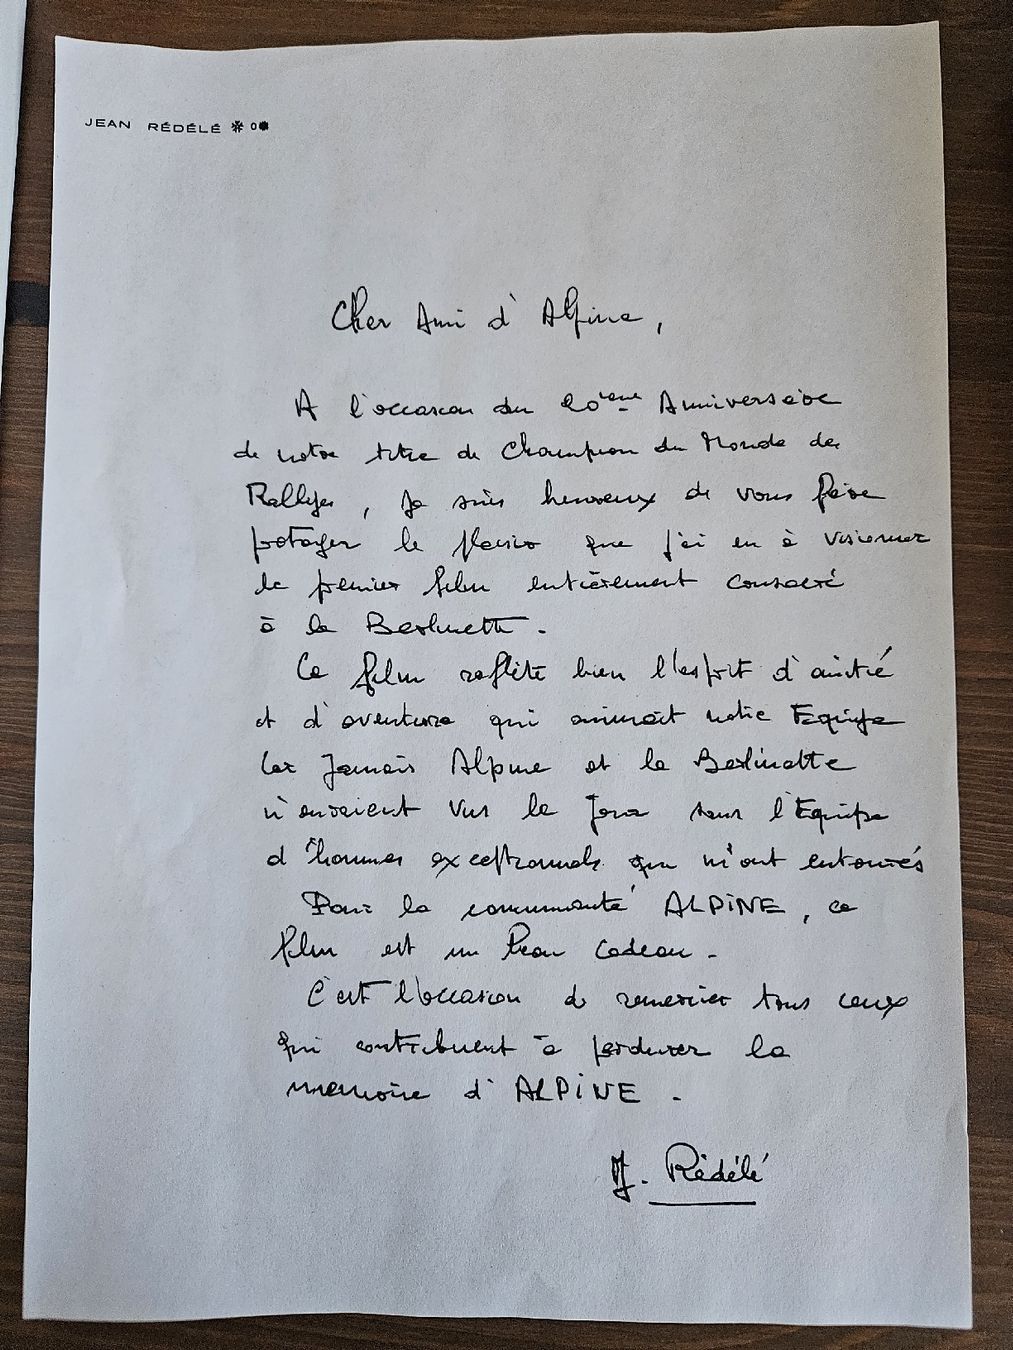 JEAN RÉDÉLÉ
Cher Ami d'Alpine,
A l'occasion du 20ème Anniversaire
de notre titre de Champion du Monde des
Rallyes, je suis heureux de vous faire
partager le plaisir que j'ai eu à visionner
le premier film entièrement consacré
à la Berlinette.
Ce film reflète bien l'esprit d'amitié
et d'aventure qui animait notre Equipe
Car Jamais Alpine et la Berlinette
n'auraient vus le Jour sans l'Equipe
d'hommes exceptionnels qui m'ont entourés
Pour la communauté ALPINE, ce
film est un beau cadeau.
C'est l'occasion de remercier tous ceux
qui contribuent à perdurer la
mémoire d'ALPINE.
J. Rédélé